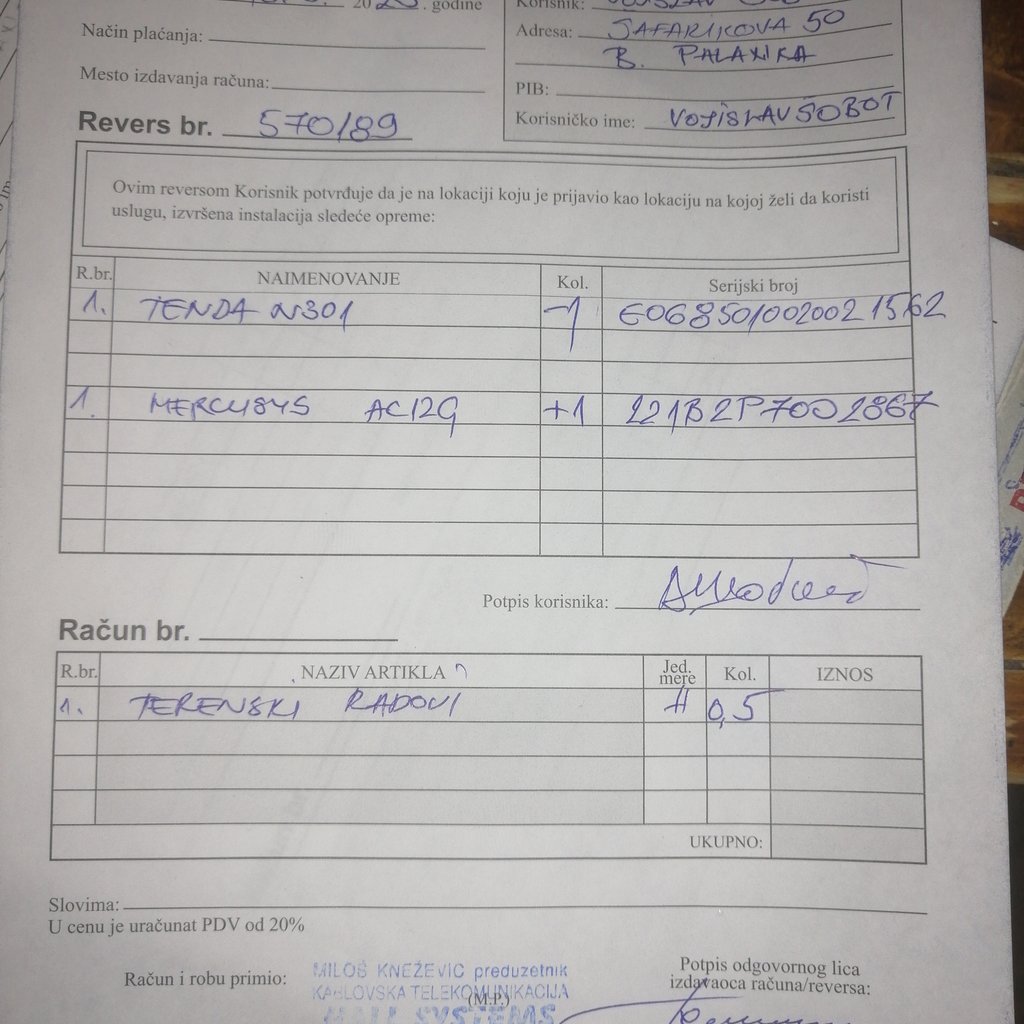 20 . godine
Način plaćanja:
Mesto izdavanja računa:
Revers br. 570/89
Korisnik: VOJISLAV
Adresa: ŠAFARIKOVA 50
B. PALANKA
PIB:
Korisničko ime: VOJISLAVŠOBOT
Ovim reversom Korisnik potvrđuje da je na lokaciji koju je prijavio kao lokaciju na kojoj želi da koristi
uslugu, izvršena instalacija sledeće opreme:
R.br. NAIMENOVANJE Kol. Serijski broj
1. TENDA N301 -1 E0685010020021562
1. MERCUSYS AC12G +1 221B2P7002867
Potpis korisnika:
Račun br.
R.br. NAZIV ARTIKLA Jed. mere Kol. IZNOS
1. TERENSKI RADOVI H 0,5
UKUPNO:
Slovima:
U cenu je uračunat PDV od 20%
Račun i robu primio:
MILOŠ KNEŽEVIĆ preduzetnik
KABLOVSKA TELEKOMUNIKACIJA
(M.P.)
HALL SYSTEMS
Potpis odgovornog lica
izdavaoca računa/reversa: